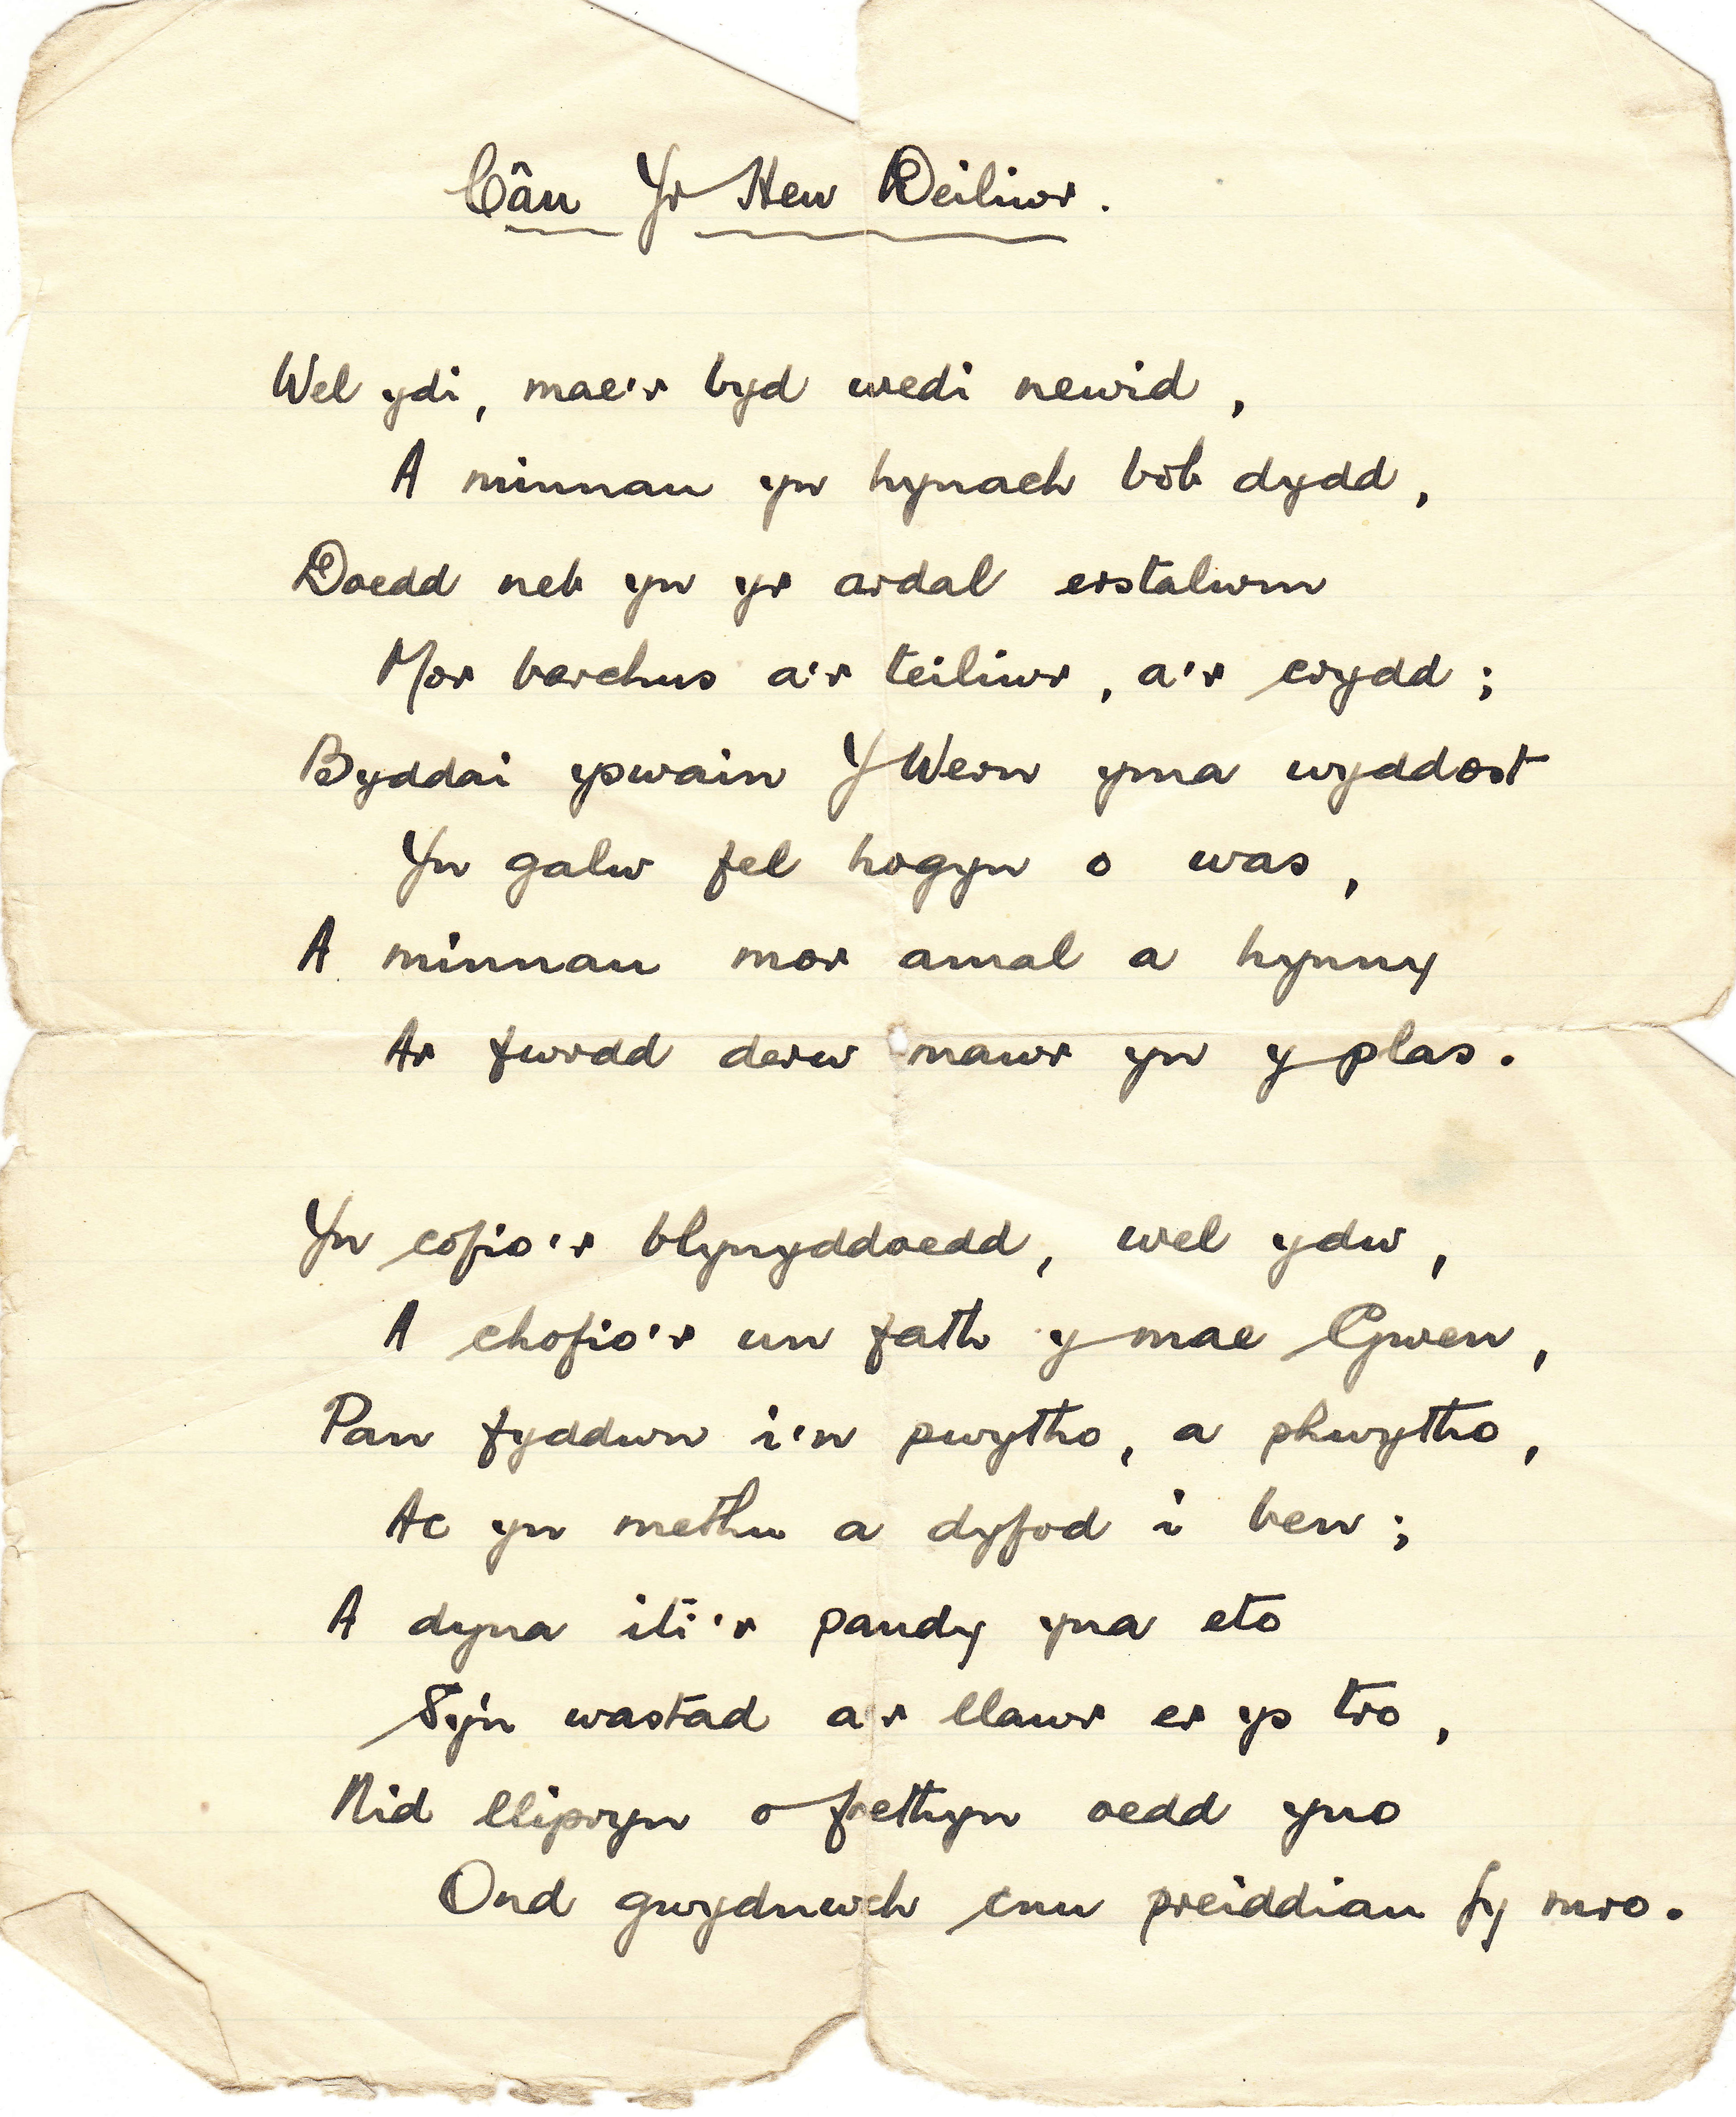 Cân Yr Hen Deiliwr.
Wel ydi, mae'r byd wedi newid,
A minnau yn hynach bob dydd,
Doedd neb yn yr ardal erstalwm
Mor barchus a'r teiliwr, a'r crydd;
Byddai yswain Y Wern yma wyddost
Yn galw fel hogyn o was,
A minnau mor amal a hynny
Ar fwrdd derw mawr yn y plas.
Yn cofio'r blynyddoedd, wel ydw,
A chofio'r un fath y mae Gwen,
Pan fyddwn i'n pwytho, a phwytho,
Ac yn methu a dyfod i ben;
A dyna iti'r pandy yna eto
Sy'n wastad a'r llawr er ys tro,
Nid llipryn o frethyn oedd yno
Ond gwydnwch cnu preiddiau fy mro.